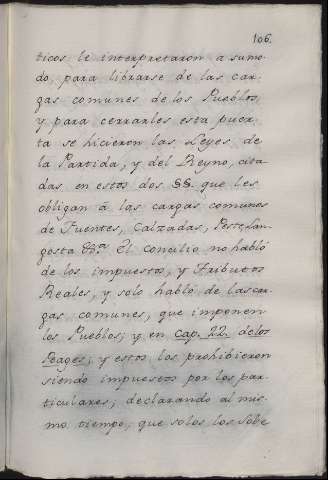 106.
ticos le interpretaron a su mo-
do, para librarse de las car-
gas comunes de los Pueblos,
y para cerrarles esta puer-
ta se hicieron las Leyes de
la Partida, y del Reyno, cita-
das en estos dos §§. que les
obligan á las cargas comunes
de Fuentes, Calzadas, Peste, Lan-
gosta &.ª El concilio no habló
de los impuestos, y Tributos
Reales, y solo habló de las car-
gas comunes, que imponen
los Pueblos; y en cap. 22. de los
Peages; y estos los prohibieron
siendo impuestos por los par-
ticulares; declarando al mis-
mo tiempo, que solos los Sobe